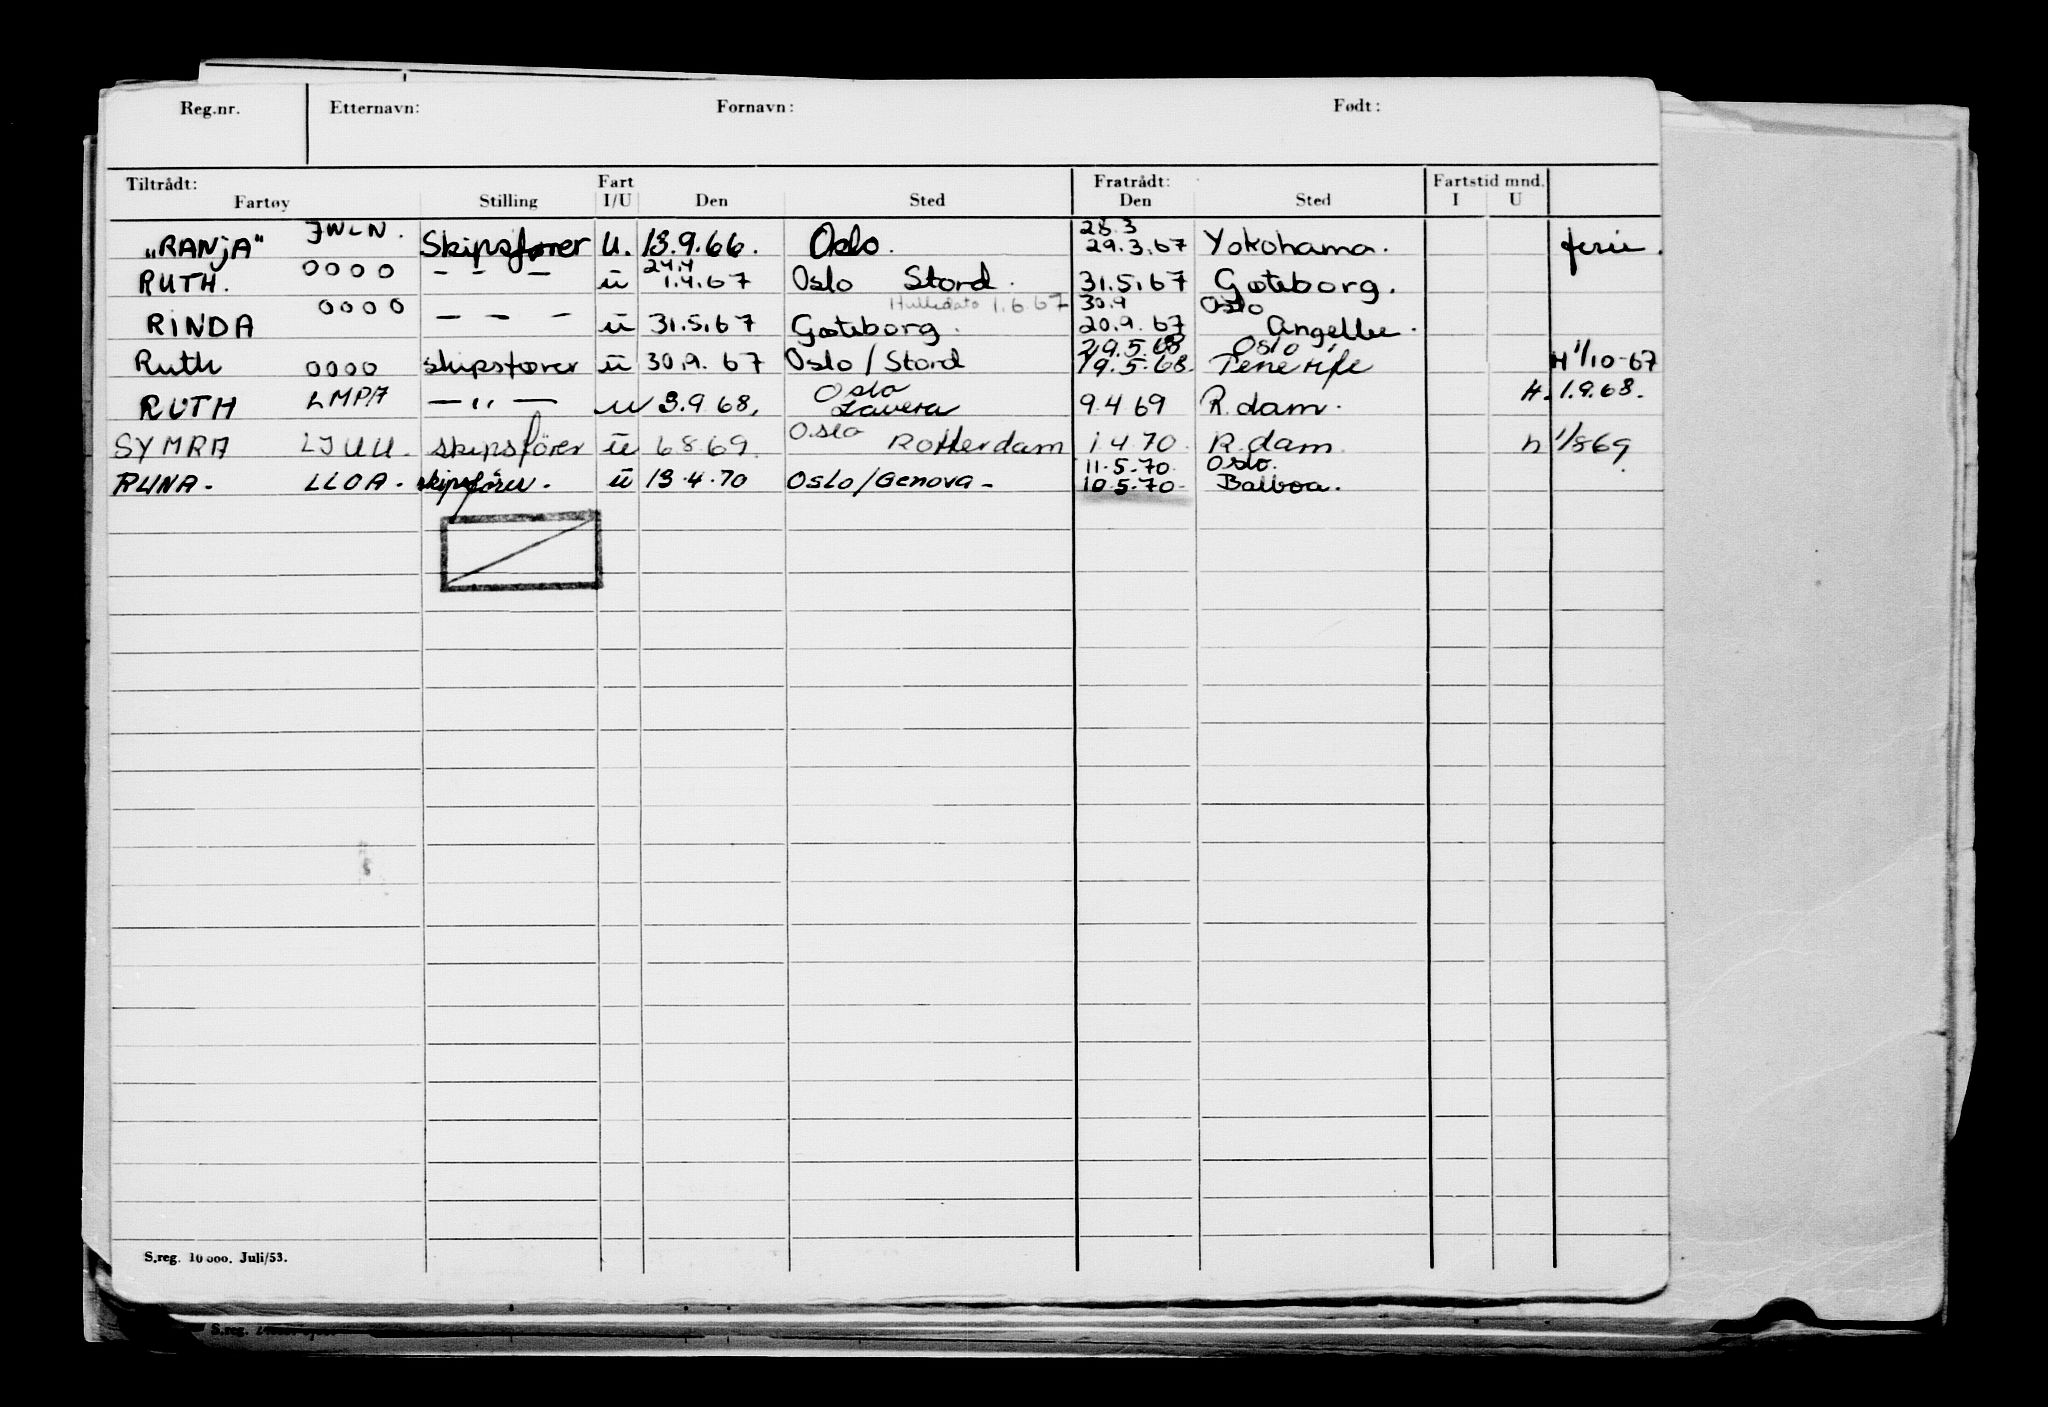 Reg.nr. Etternavn: Fornavn: Født:
Tiltrådt: Fart Fratrådt: Fartstid mnd.
Fartøy Stilling I/U Den Sted Den Sted I U
28.3
„RANjA" JWLN. Skipsfører U. 13.9.66. Oslo. 29.3.67 Yokohama. ferie.
24.4
RUTH. oooo – " – ū 1.4.67 Oslo Stord. 31.5.67 Gøteborg.
Hullsdato 1.6.67 30.9 Oslo
RINDA oooo – – – ū 31.5.67 Gøteborg. 20.9.67
29.5.68 Oslo
Ruth oooo skipsfører ū 30.9.67 Oslo/Stord 19.5.68. Tenerife H 1/10-67
Oslo
RUTH LMPA – " – u 3.9.68. Lavera 9.4 69 R.dam. H. 1.9.68.
Oslo
SYMRA LJUU. skipsfører ū 6 8 69. Rotterdam 1 4 70. R.dam. h 1/8 69
11.5.70. Oslo.
RUNA. LLOA. skipsfører. ū 13.4.70 Oslo/Genova – 10.5.70. Balboa.
S.reg. 10 000. Juli/53.
S.reg.